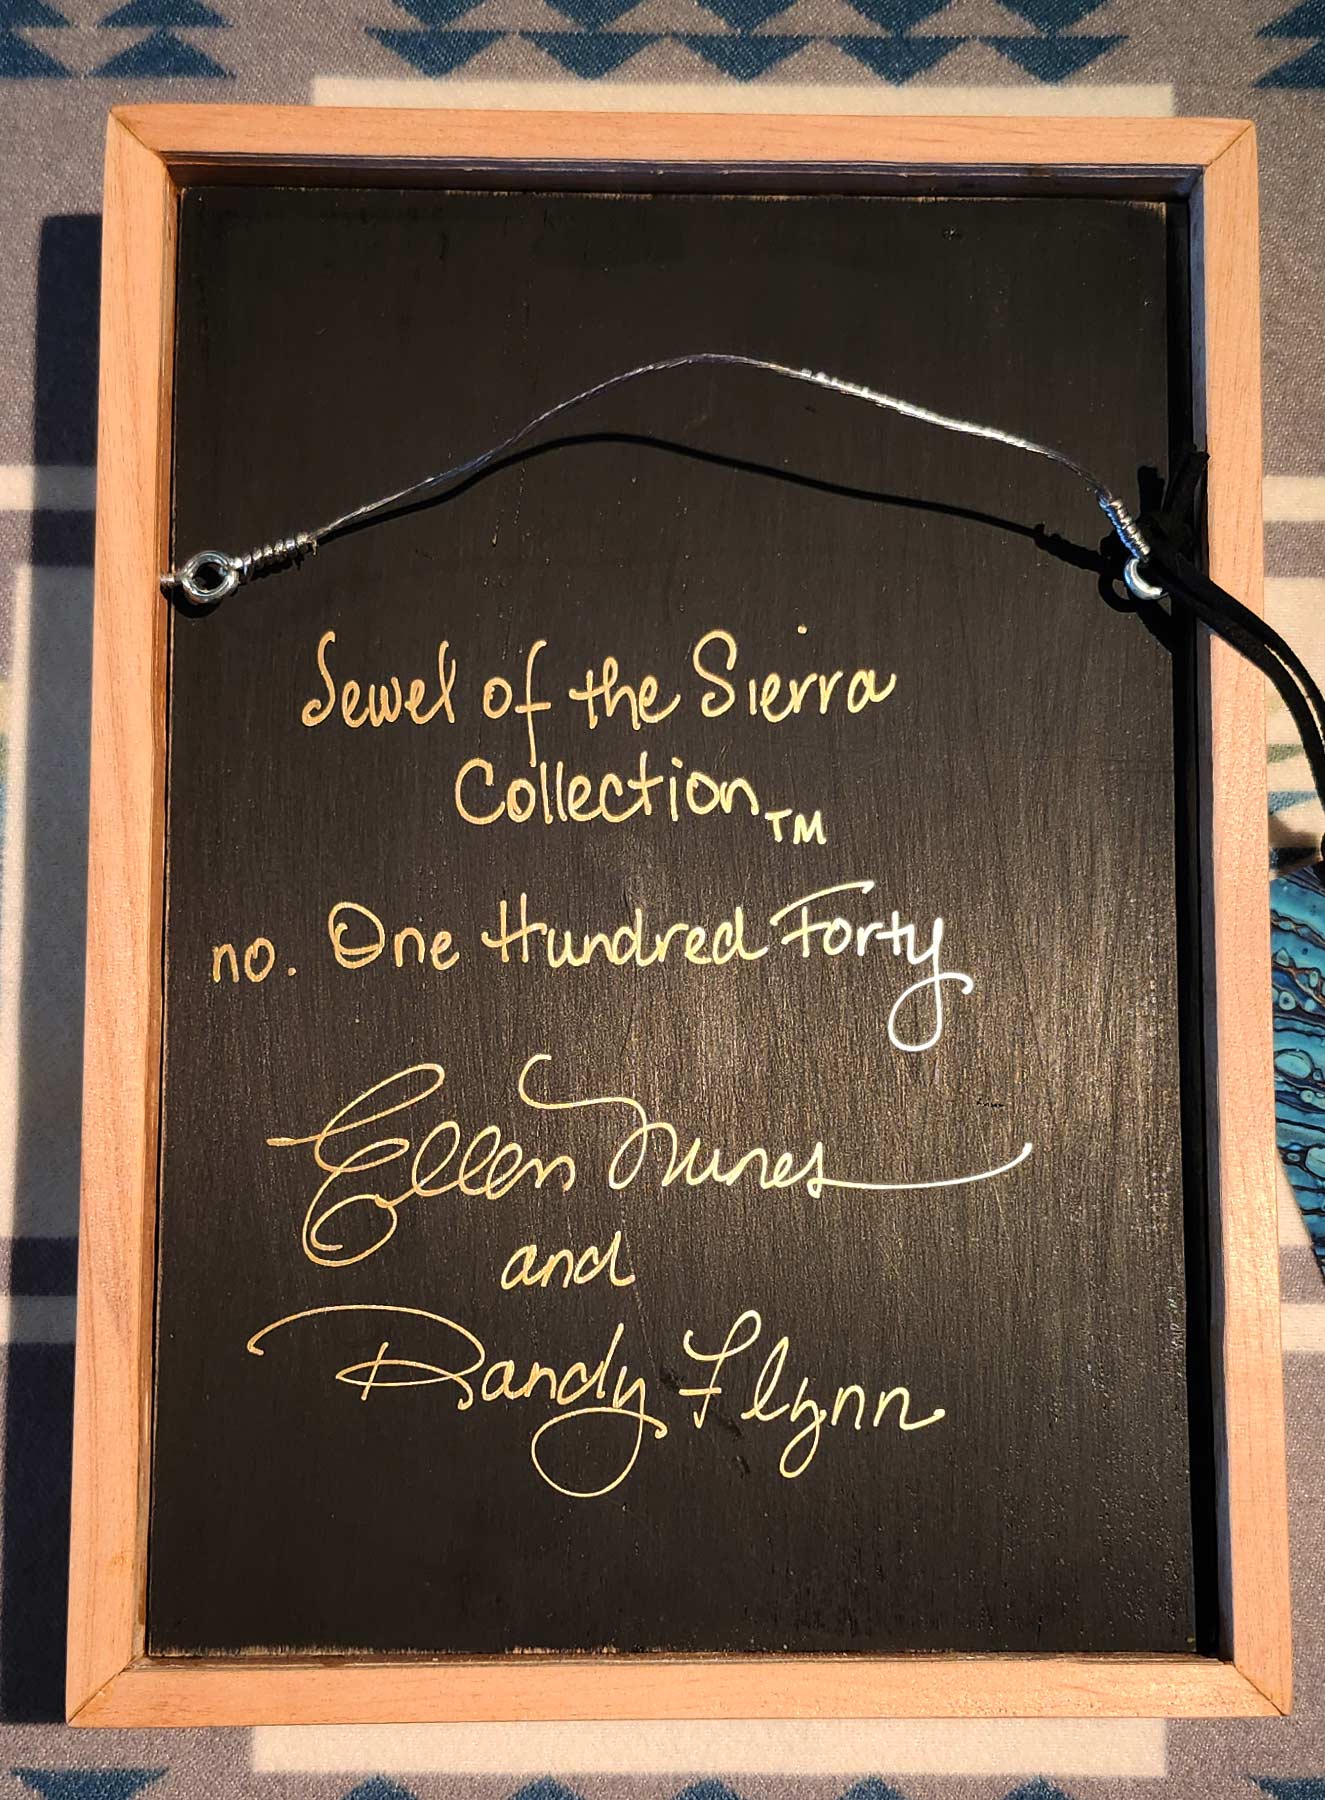 Jewel of the Sierra
Collection TM
no. One Hundred Forty
Ellen Nunes
and
Randy Flynn